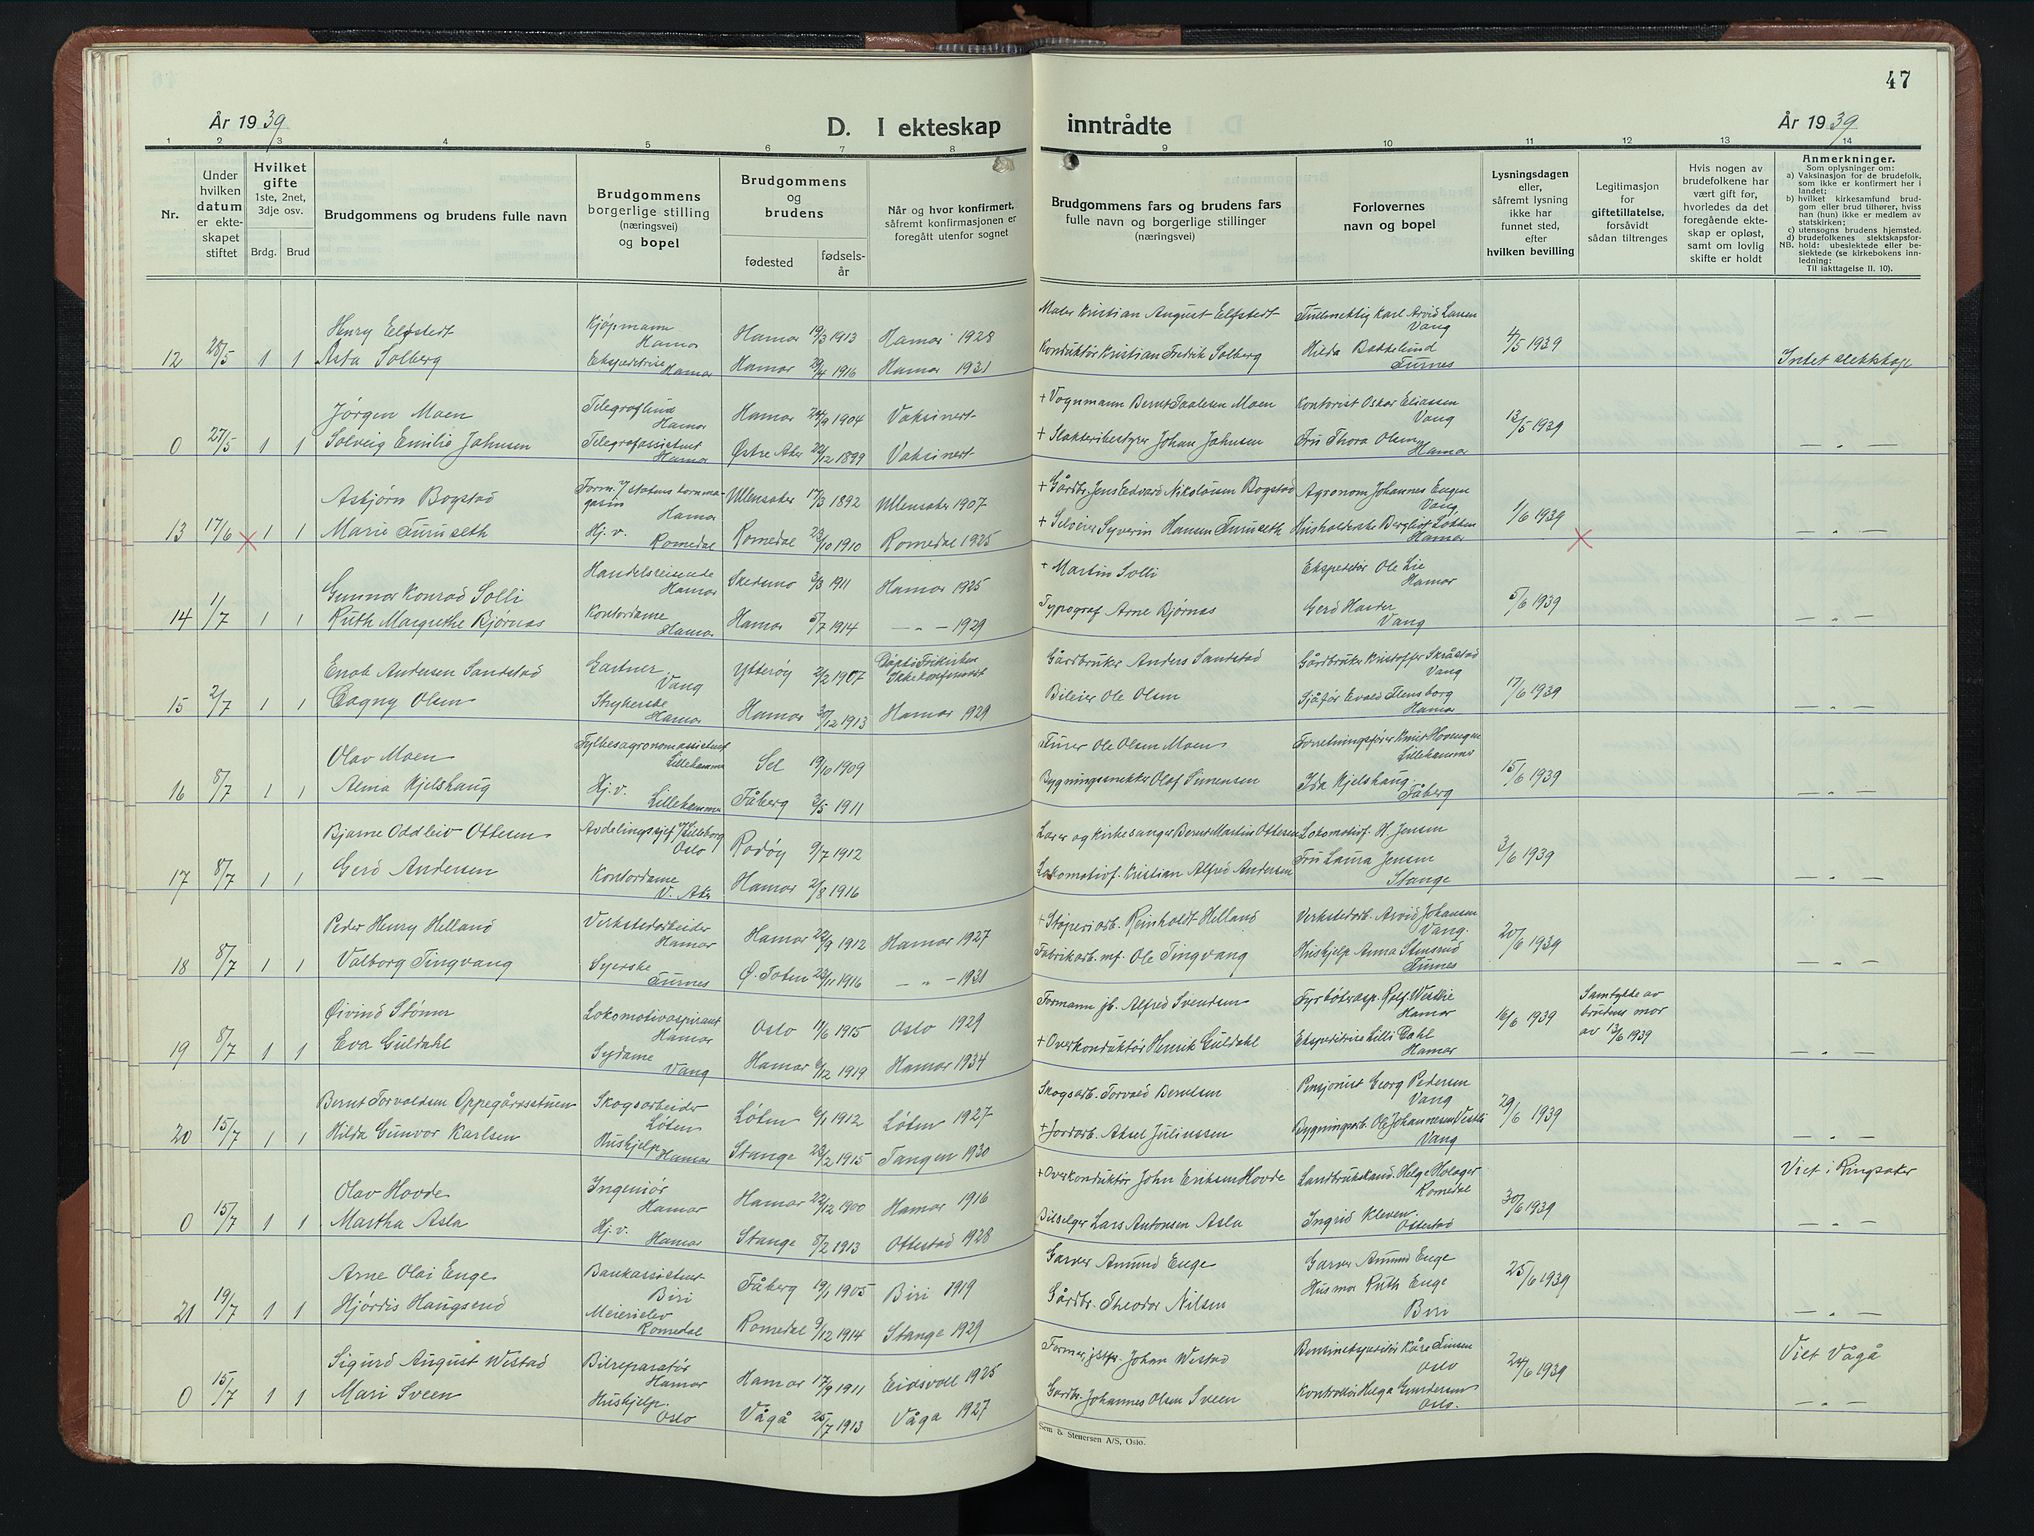 47
År 1939
D. I ekteskap inntrådte
År 1939
1 2 3 4 5 6 7 8 9 10 11 12 13 14
Nr.
Under hvilken datum er ekteskapet stiftet
Hvilket gifte 1ste, 2net, 3dje osv.
Brdg. Brud
Brudgommens og brudens fulle navn
Brudgommens borgerlige stilling (næringsvei) og bopel
Brudgommens og brudens
fødested
fødselsår
Når og hvor konfirmert, såfremt konfirmasjonen er foregått utenfor sognet
Brudgommens fars og brudens fars fulle navn og borgerlige stillinger (næringsvei)
Forlovernes navn og bopel
Lysningsdagen eller, såfremt lysning ikke har funnet sted, efter hvilken bevilling
Legitimasjon for giftetillatelse, forsåvidt sådan tiltrenges
Hvis nogen av brudefolkene har vært gift for, hvorledes da det foregående ekteskap er opløst, samt om lovlig skifte er holdt
Anmerkninger.
Som oplysninger om:
a) Vaksinasjon for de brudefolk, som ikke er konfirmert her i landet;
b) hvilket kirkesamfund brudgom eller brud tilhører, hviss han (hun) ikke er medlem av statskirken;
c) utensogns brudens hjemsted.
d) brudefolkenes slektskapsforhold: ubeslektede eller beslektede (se kirkebokens innledning:
NB. Til iakttagelse II. 10).
Henry Elfstedt Kjøpmann Hamar Hamar 19/3 1913 Hamar 1928 Maler Kristian August Elfstedt Fullmektig Karl Arvid Larsen Vang
12 28/5 1 1 Asta Solberg Ekspeditrise Hamar Hamar 29/4 1916 Hamar 1931 Konduktør Kristian Fredrik Solberg Hilda Bakkelund Furnes 4/5 1939 Intet slektskap
Jørgen Moen Telegrafbud Hamar Hamar 24/9 1904 Vaksinert + Vognmann Bernt Paalesen Moen Kontorist Oskar Eliassen Vang
0 27/5 1 1 Solveig Emilie Jahnsen Telegrafassistent Hamar Østre Aker 22/12 1899 Vaksinert + Slakteribestyrer Johan Jahnsen Fru Thora Olsen Hamar 13/5 1939 — " —
Asbjørn Bogstad Form. v/ statens kornmagasin Hamar Ullensaker 17/3 1892 Ullensaker 1907 + Gårdbr. Jens Edvard Nikolaisen Bogstad Agronom Johannes Engen Vang
13 17/6 1 1 Marie Furuseth Hj. v. Romedal Romedal 23/10 1910 Romedal 1925 + Selveier Syverin Hansen Furuseth Husholderske Bergliot Løkken Hamar 1/6 1939 — " —
Gunnar Konrad Solli Handelsreisende Hamar Skedsmo 3/3 1911 Hamar 1925 + Martin Solli Ekspeditør Ole Lie Hamar
14 1/7 1 1 Ruth Margrethe Bjørnås Kontordame Hamar Hamar 5/7 1914 — " — 1929 Typograf Arne Bjørnås Gerd Harder Vang 5/6 1939 — " —
Enok Andersen Sandstad Gartner Vang Ytterøy 2/2 1907 Døpt i Frikirken Ikke konfirmert Gårdbruker Anders Sandstad Gårdbruker Kristoffer Skråstad Vang
15 2/7 1 1 Dagny Olsen Strykerske Hamar Hamar 30/12 1913 Hamar 1929 Bileier Ole Olsen Sjåfør Evald Flensborg Hamar 17/6 1939 — " —
Olav Moen Fylkesagronomassistent Lillehammer Sel 19/10 1909 Furer Ole Olsen Moen Forretningsfører Knut Hovengen Lillehammer
16 8/7 1 1 Alma Kjelshaug Hj. v. Lillehammer Fåberg 3/5 1911 Bygningssnekker Olaf Simensen Ida Kjelshaug Fåberg 15/6 1939 — " —
Bjarne Oddleiv Ottesen Avdelingssjef v/ Lilleborg Oslo Rødøy 9/7 1912 Lærer og kirkesanger Bernt Martin Ottesen Lokomotivf. H. Jensen
17 8/7 1 1 Gerd Andersen Kontordame V. Aker Hamar 2/8 1916 Lokomotivf. Kristian Alfred Andersen Fru Laura Jensen Stange 3/6 1939 — " —
Peder Henry Helland Verkstedarbeider Hamar Hamar 22/9 1912 Hamar 1927 + Støperiarb. Reinholdt Helland Verkstedarb. Arvid Johansen Vang
18 8/7 1 1 Valborg Tingvang Syerske Furnes Ø. Toten 22/11 1916 — " — 1931 Fabrikarb. mf. Ole Tingvang Hushjelp Anna Stensrud Furnes 20/6 1939 — " —
Øivind Støner Lokomotivaspirant Hamar Oslo 17/6 1915 Oslo 1929 Formann jb. Alfred Svendsen Fyrbøterasp. Rolf Westlie Hamar
19 8/7 1 1 Eva Guldahl Sydame Vang Hamar 6/12 1919 Hamar 1934 + Overkonduktør Henrik Guldahl Ekspeditrise Lilli Dahl Hamar 16/6 1939 Samtykke av brudens mor av 13/6 1939 — " —
Bernt Torvaldsen Oppegårdsstuen Skogsarbeider Løten Løten 6/1 1912 Løten 1927 Skogsarb. Torvald Berntsen Pensjonist Georg Pedersen Vang
20 15/7 1 1 Hilda Gunvor Karlsen Hushjelp Hamar Stange 23/2 1915 Tangen 1930 + Jordarb. Aksel Juliussen Bygningsarb. Ole Johannesen Vestli Vang 29/6 1939 — " —
Olav Hovde Ingeniør Hamar Hamar 22/12 1900 Hamar 1916 + Overkonduktør John Eriksen Hovde Landbrukskand. Helge Holager Romedal Viet i Ringsaker
0 15/7 1 1 Martha Asla Hj. v. Hamar Stange 8/2 1913 Ottestad 1928 Bilselger Lars Antonsen Asla Ingrid Kleven Ottestad 30/6 1939 — " —
Arne Olai Enge Bankassistent Biri Fåberg 19/1 1905 Biri 1919 Garver Amund Enge Garver Amund Enge
21 19/7 1 1 Hjørdis Haugsrud Meierielev Romedal Romedal 9/12 1914 Stange 1929 Gårdbr. Theodor Nilsen Husmor Ruth Enge Biri 25/6 1939 — " —
Sigurd August Westad Bilreparatør Hamar Hamar 17/9 1911 Eidsvoll 1925 Former jstfr. Johan Westad Bensinekspeditør Kåre Simsen Oslo Viet Vågå
0 15/7 1 1 Mari Sveen Hushjelp Oslo Vågå 25/7 1913 Våga 1927 Gardbr. Johannes Olsen Sveen Kontrollør Helga Gundersen Oslo. 24/6 1939 — " —
Sem & Stenersen A/S, Oslo.